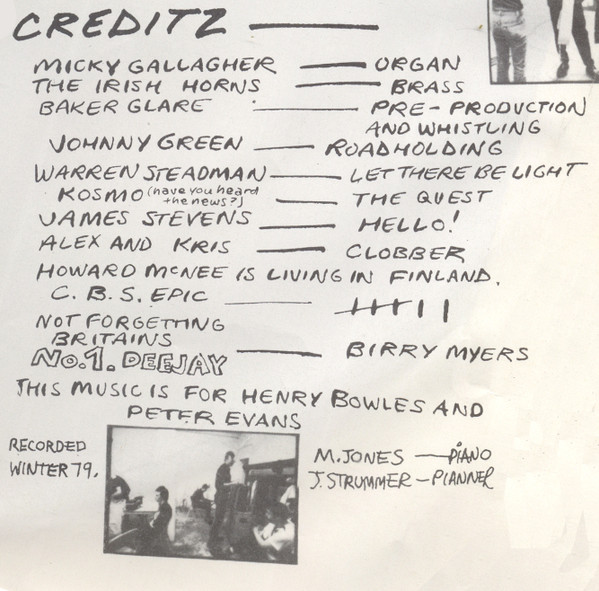 CREDITZ
MICKY GALLAGHER — ORGAN
THE IRISH HORNS — BRASS
BAKER GLARE — PRE-PRODUCTION
AND WHISTLING
JOHNNY GREEN — ROADHOLDING
WARREN STEADMAN — LET THERE BE LIGHT
KOSMO (have you heard the news?) — THE QUEST
JAMES STEVENS — HELLO!
ALEX AND KRIS — CLOBBER
HOWARD McNEE IS LIVING IN FINLAND.
C.B.S. EPIC —
NOT FORGETTING
BRITAINS
No.1. DEEJAY — BIRRY MYERS
THIS MUSIC IS FOR HENRY BOWLES AND
PETER EVANS
RECORDED
WINTER 79.
M. JONES — PIANO
J. STRUMMER — PIANNER